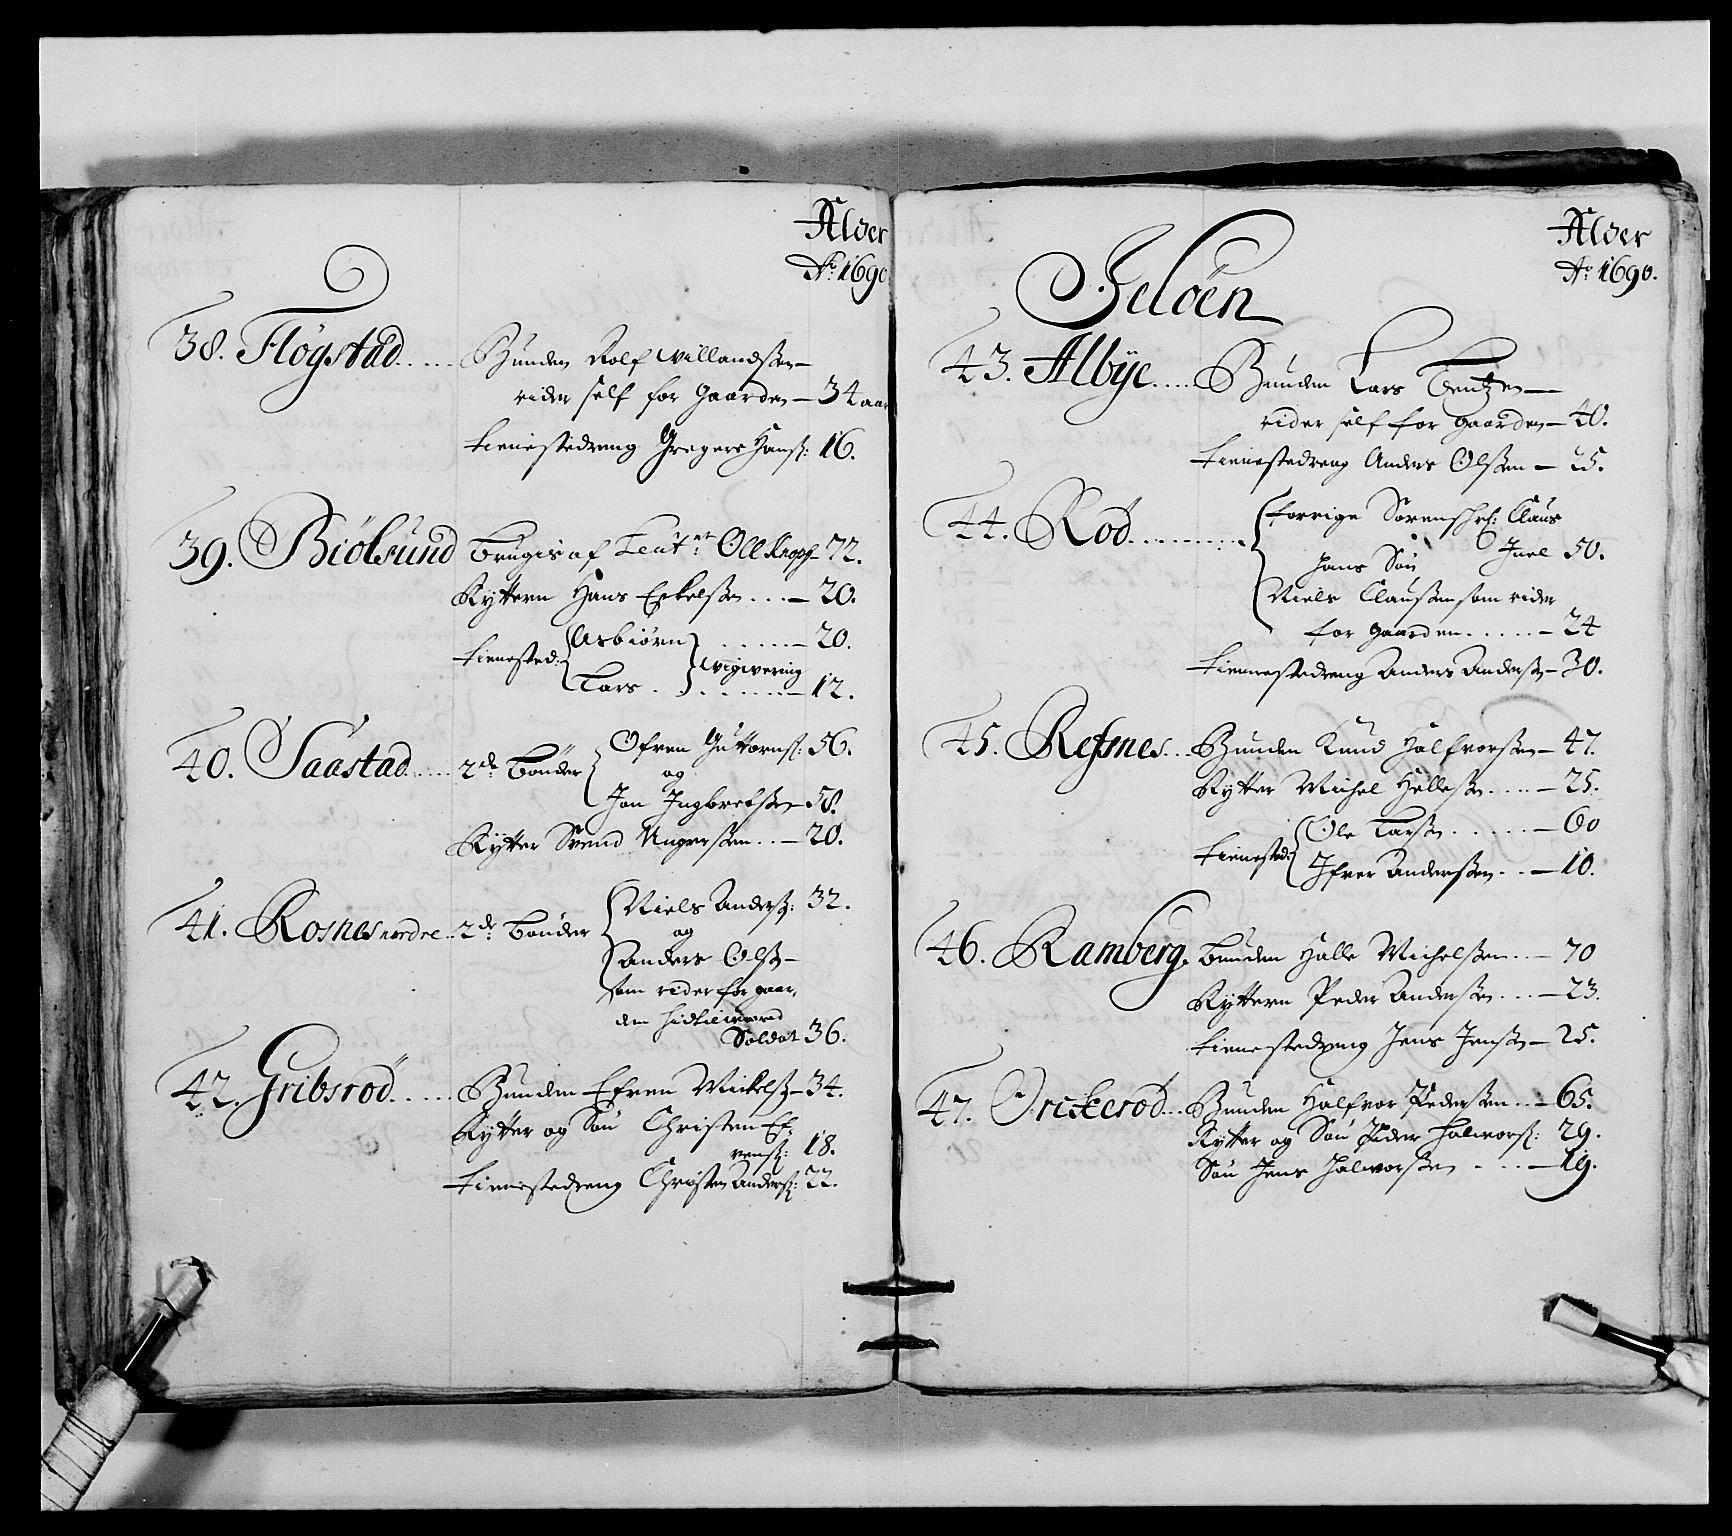 Alder
A° 1690
38. Fløgstad..... Bunden Rolf Willandssen –
rider self for Gaarden – 34 aar
tienistedreng Gregers Hanss: 16.
39. Biölsund Brugis af Leutnt Oll Knopf – 72.
Rytteren Hans Eskelssen ... – 20.
tienisted: { Asbiørn } ...... – 20.
wigwering
Lars ......... – 12.
40. Saastad..... 2de Bönder { Ofren Guttormss: 56.
og
Jon Ingbretssen – 58.
Rytter Svend Ungerssen .. – 20.
41. Rosnes nordre .. 2de Bönder { Niels Anderss: 32.
og
Anders Olssen –
som rider for gaar-
den hidtil werred
Soldat 36.
42. Gribsrod..... Bunden Efven Mickelss – 34.
Rytter og Søn Christen Ef-
venss: 18.
tiennestedreng Christen Anderss: 22.
Alder
A° 1690.
Jeløen
43. Albye..... Bunden Lars Bentzen –
rider self for gaarden – 40.
tienistedreng Anders Olssen – 25.
44. Rod.......... { forrige Sorenschrf: Claus
Juel 50.
hans Søn
Niels Claussen som rider
for gaarden..... – 24
tiennestedreng Anders Anderssen – 30.
45. Refsnes... Bunden Knud Halfvorssen – 47.
Rytter Michel Hellessen .... – 25.
tienisted: { Ole Larssen ...... – 60
Ifver Anderssen .. – 10.
46. Ramberg. bunden Halle Michelssen .. – 70
Rytteren Peder Anderssen ... – 23.
tienestedreng Jens Jenssen – 25.
47. Orickerod... Bunden Halfvor Pederssen .. – 65.
Rytter og Søn Peder Halworss: 29.
Søn Jens Halworssen .... – 19.